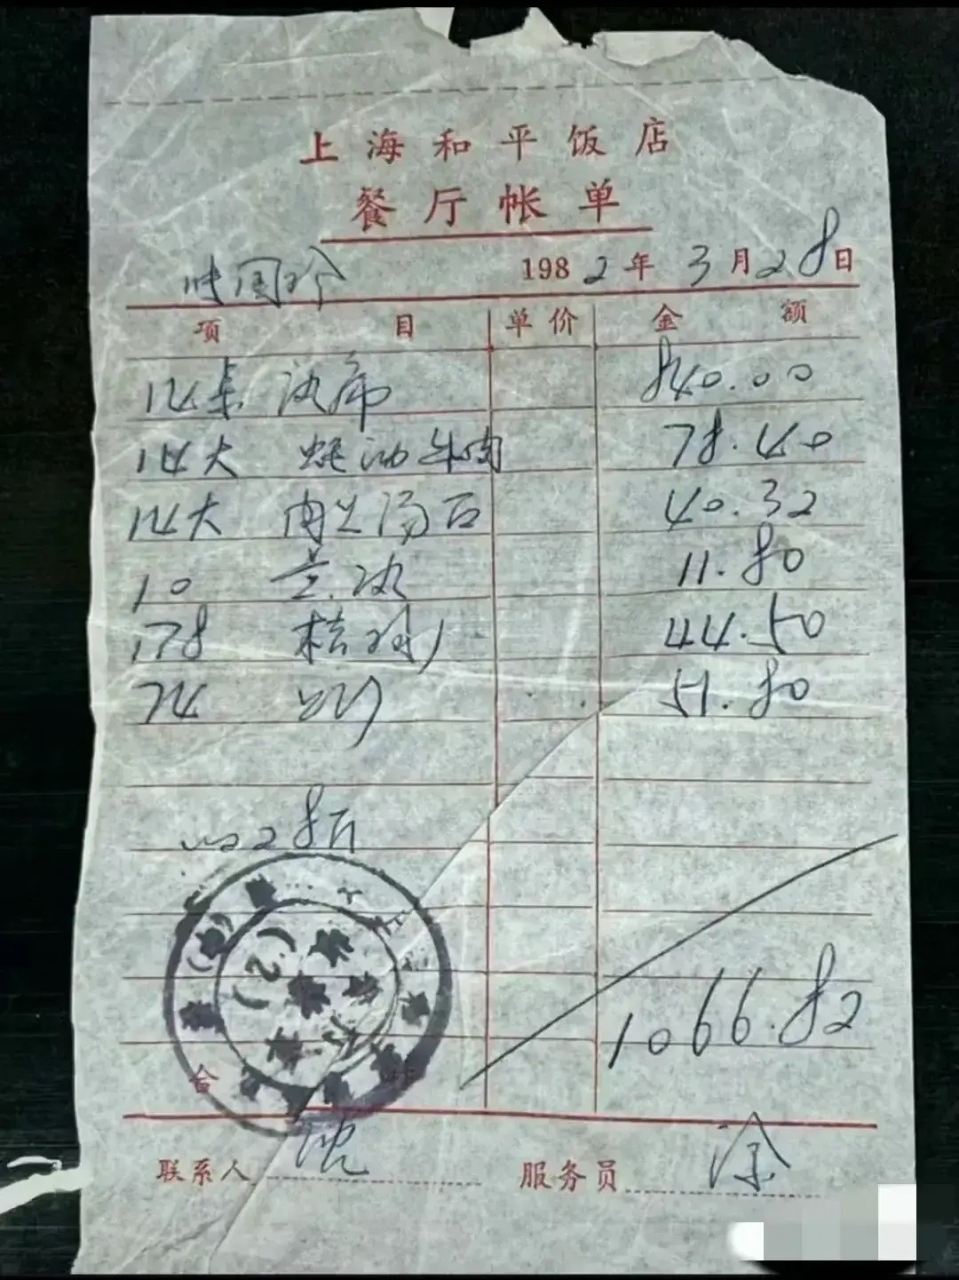 上海和平饭店
餐厅帐单
1982年3月28日
项目 单价 金额
14桌 酒席 840.00
14大 蚝油牛肉 78.40
14大 肉丝汤面 40.32
10 11.80
178 桔水 44.50
74 51.80
合计 1066.82
联系人 沈 服务员 涂